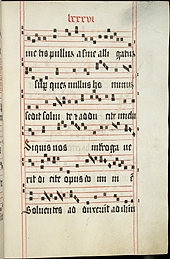 lxxxvi
me tis pullus asine alli gatus
sup quez nullus ho minuz
sedit solui te et addu cite michi
Siquis uos interroga ue
rit di cite opus do mi n
Soluentes ad duxerut ad ihesu